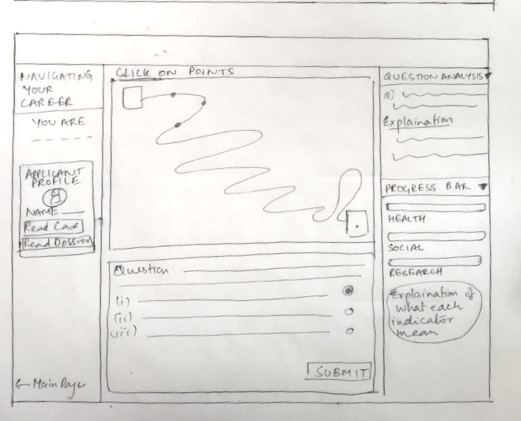 NAVIGATING
YOUR
CAREER
YOU ARE
APPLICANT
PROFILE
NAME
Read Case
Read Dossier
← Main Page
CLICK ON POINTS
Question:
(i)
(ii)
(iii)
SUBMIT
QUESTION ANALYSIS
Q)
Explaination
PROGRESS BAR
HEALTH
SOCIAL
RESEARCH
Explaination of
what each
indicator
mean